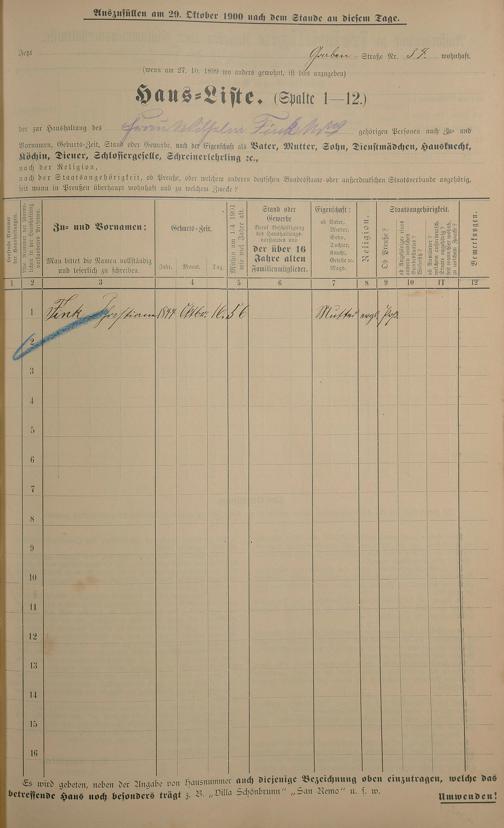 Auszufüllen am 29. Oktober 1900 nach dem Stande an diesem Tage.
Jetzt Graben - Straße Nr. wohnhaft.
(wenn am 27. 10. 1899 wo anders gewohnt, ist dies anzugeben)
Haus-Liste. (Spalte 1—12.)
der zur Haushaltung des Frau Wilhelm Fink gehörigen Personen nach Zu- und
Vornamen, Geburts-Zeit, Stand oder Gewerbe, nach der Eigenschaft als Vater, Mutter, Sohn, Dienstmädchen, Hausknecht,
Köchin, Diener, Schlossergeselle, Schreinerlehrling ec.,
nach der Religion,
nach der Staatsangehörigkeit, ob Preuße, oder welchem anderen deutschen Bundesstaate oder außerdeutschen Staatsverbande angehörig,
seit wann in Preußen überhaupt wohnhaft und zu welchem Zwecke?
Zu- und Vornamen:
Man bittet die Namen vollständig
und leserlich zu schreiben.
Geburts-Zeit.
Jahr. Monat. Tag.
Stand oder
Gewerbe
der über 16
Jahre alten
Familienmitglieder.
Eigenschaft:
ob Vater,
Mutter,
Sohn,
Tochter,
Knecht,
Geselle,
Magd.
Religion.
Staatsangehörigkeit.
Ob Preuße?
Bemerkungen.
1 2 3 4 5 6 7 8 9 10 11 12
1 Fink 1844 Oktbr. 16. 56 Mutter evgl.
2
3
4
5
6
7
8
9
10
11
12
13
14
15
16
Es wird gebeten, neben der Angabe von Hausnummer auch diejenige Bezeichnung oben einzutragen, welche das
betreffende Haus noch besonders trägt z. B. „Villa Schönbrunn" „San Remo" u. s. w.
Umwenden!